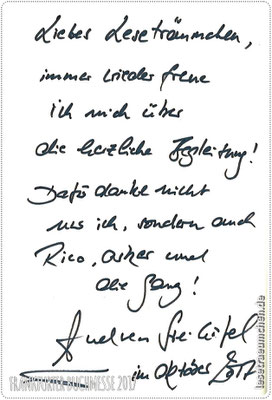 Liebes Leseträumchen,
immer wieder freue
ich mich über
die herzliche Begleitung!
Dafür danke nicht
nur ich, sondern auch
Rico, Oskar und
die Gang!
Andreas Steinhöfel
im Oktober 2017
FRANKFURTER BUCHMESSE 2017